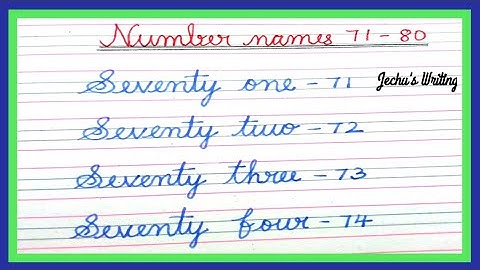 Number names 71 - 80
Seventy one - 71
Jechu's Writing
Seventy two - 72
Seventy three - 73
Seventy four - 74